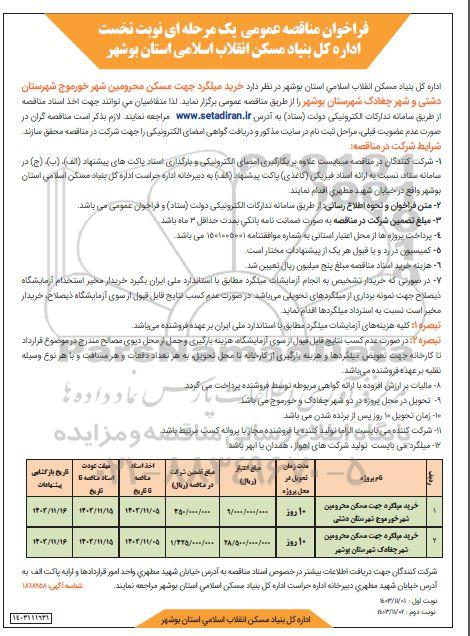 فراخوان مناقصه عمومی یک مرحله ای نوبت نخست
اداره کل بنیاد مسکن انقلاب اسلامی استان بوشهر
اداره کل بنیاد مسکن انقلاب اسلامي استان بوشهر در نظر دارد خرید میلگرد جهت مسکن محرومین شهر خورموج شهرستان
دشتی و شهر چغادک شهرستان بوشهر را از طریق مناقصه عمومی برگزار نماید. لذا متقاضیان می توانند جهت اخذ اسناد مناقصه
از طریق سامانه تدارکات الکترونیکی دولت (ستاد) به آدرس www.setadiran.ir مراجعه نمایند. لازم بذکر است مناقصه گران در
صورت عدم عضویت قبلی، مراحل ثبت نام در سایت مذکور و دریافت گواهی امضای الکترونیکی را جهت شرکت در مناقصه محقق سازند.
شرایط شرکت در مناقصه:
۱- شرکت کنندگان در مناقصه میبایست علاوه بر بکارگیری امضای الکترونیکی و بارگذاری اسناد پاکت های پیشنهاد (الف)، (ب)، (ج) در
سامانه ستاد، نسبت به ارائه اسناد فیزیکی (کاغذی) پاکت پیشنهاد (الف) به دبیرخانه اداره حراست اداره کل بنیاد مسکن اسلامی استان
بوشهر واقع در خیابان شهید مطهری اقدام نمایند.
۲- متن فراخوان و نحوه اطلاع رسانی: از طریق سامانه تدارکات الکترونیکی دولت (ستاد) و فراخوان عمومی می باشد.
۳- مبلغ تضمین شرکت در مناقصه به صورت ضمانت نامه بانکی بمدت حداقل ۳ ماه باشد
۴- پرداخت پروژه ها از محل اعتبار استانی به شماره موافقتنامه ۱۵۰۱۰۰۵۰۰۱ می باشد.
۵- کمیسیون در رد و یا قبول هر یک از پیشنهادات مختار است.
۶- هزینه خرید اسناد مناقصه مبلغ پنج میلیون ریال تعیین شد.
۷- در صورتی که خریدار تشخیص به انجام آزمایشات میلگرد مطابق با استاندارد ملی ایران بگیرد خریدار مخیر استخدام آزمایشگاه
ذیصلاح جهت نمونه برداری از میلگردهای تحویلی می‌باشد. در صورت عدم کسب نتایج قابل قبول از سوی آزمایشگاه ذیصلاح، خریدار
مخیر است نسبت به استرداد میلگردها اقدام نماید.
تبصره ۱: کلیه هزینه‌های آزمایشات میلگرد مطابق با استاندارد ملی ایران بر عهده فروشنده می‌باشد.
تبصره ۲: در صورت عدم کسب نتایج قابل قبول از سوی آزمایشگاه، هزینه بارگیری و حمل از محل دپوی مصالح مندرج در موضوع قرارداد
تا کارخانه جهت تعویض میلگردها و هزینه بارگیری از کارخانه تا محل تحویل، به هر تعداد دفعات و هر مسافت و با هر نوع وسیله
نقلیه بر عهده فروشنده می‌باشد.
۸- مالیات بر ارزش افزوده با ارائه گواهی مربوطه توسط فروشنده پرداخت می گردد.
۹- تحویل در محل پروژه در دو شهر چغادک و خورموج می باشد.
۱۰- زمان تحویل ۱۰ روز پس از برنده شدن می باشد.
۱۱- شرکت کننده می بایست الزاما تولید کننده یا فروشنده مجاز با پروانه کسب مرتبط باشد.
۱۲- میلگرد می بایست تولید شرکت های اهواز، همدان یا ابهر باشد.
ردیف | نام پروژه | مدت زمان تحویل در محل پروژه | مبلغ اعتبار (ریال) | مبلغ تضمین شرکت در مناقصه (ریال) | اخذ اسناد مناقصه تا تاریخ | مهلت عودت اسناد مناقصه تا تاریخ | تاریخ بازگشایی پیشنهادات
۱ | خرید میلگرد جهت مسکن محرومین شهر خورموج شهرستان دشتی | ۱۰ روز | ۹/۰۰۰/۰۰۰/۰۰۰ | ۴۵۰/۰۰۰/۰۰۰ | ۱۴۰۳/۱۱/۰۵ | ۱۴۰۳/۱۱/۱۵ | ۱۴۰۳/۱۱/۱۶
۲ | خرید میلگرد جهت مسکن محرومین شهر چغادک شهرستان بوشهر | ۱۰ روز | ۲۸/۵۰۰/۰۰۰/۰۰۰ | ۱/۴۲۵/۰۰۰/۰۰۰ | ۱۴۰۳/۱۱/۰۵ | ۱۴۰۳/۱۱/۱۵ | ۱۴۰۳/۱۱/۱۶
شرکت کنندگان جهت دریافت اطلاعات بیشتر در خصوص اسناد مناقصه به آدرس خیابان شهید مطهری واحد امور قراردادها و ارایه پاکت الف به
آدرس خیابان شهید مطهری دبیرخانه اداره حراست اداره کل بنیاد مسکن استان بوشهر مراجعه نمایند.
شناسه آگهی: ۱۸۶۸۹۵۸
نوبت اول : ۱۴۰۳/۱۱/۰۱
نوبت دوم : ۱۴۰۳/۱۱/۰۲
اداره کل بنیاد مسکن انقلاب اسلامی استان بوشهر
۱۴۰۳۱۱۱۶۳۱